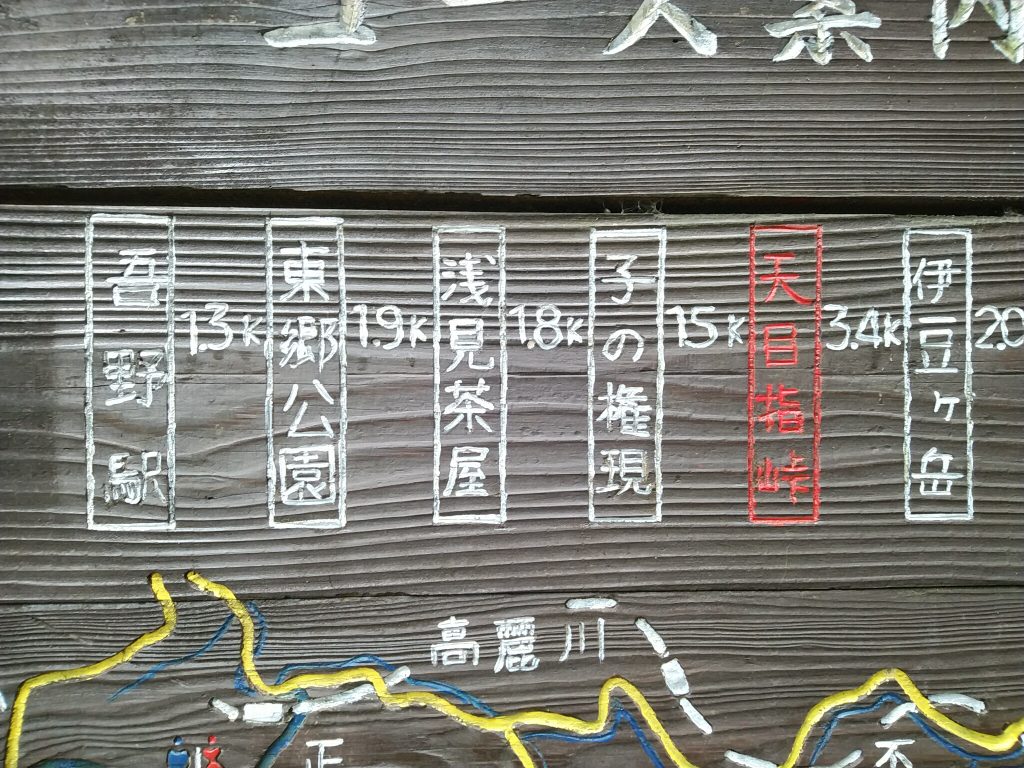 案内
吾野駅 1.3K 東郷公園 1.9K 浅見茶屋 1.8K 子の権現 1.5K 天目指峠 3.4K 伊豆ヶ岳 2.0
高麗川
正